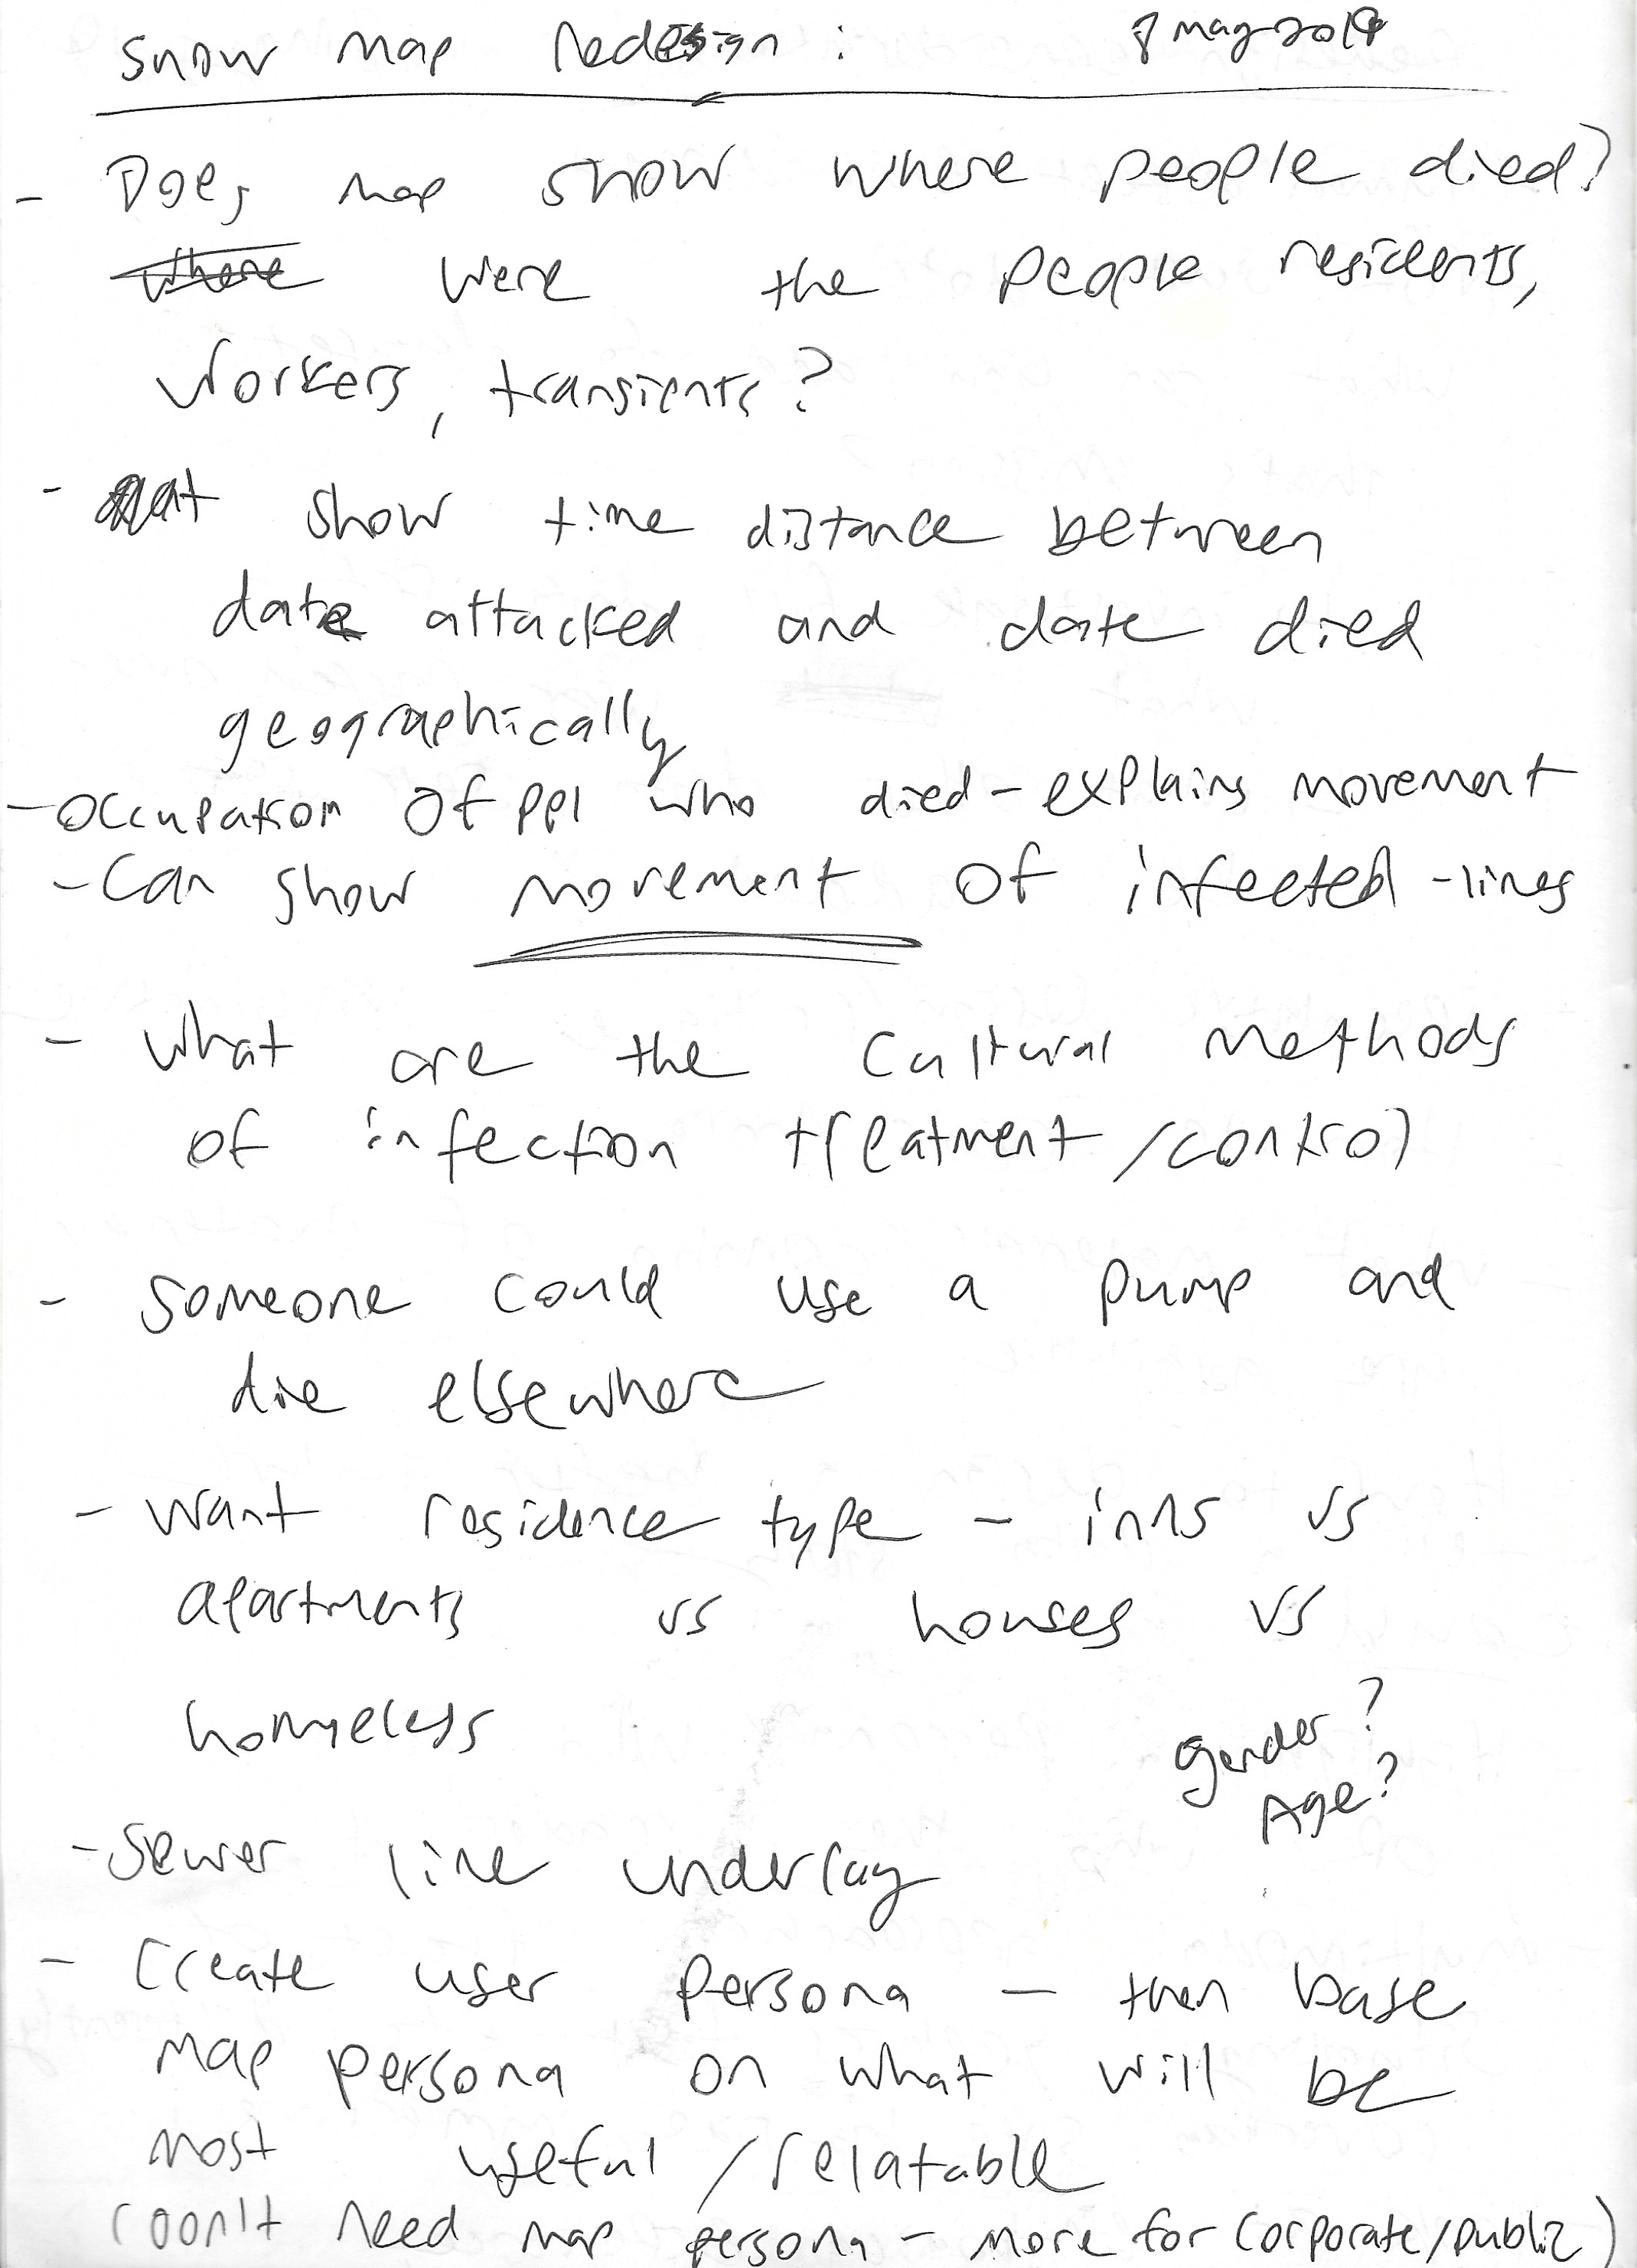 Snow Map Redesign : 8 May 2019
- Does map show where people died?
Where were the people residents,
workers, transients?
- show time distance between
date attacked and date died
geographically
- occupation of ppl who died - explains movement
- Can show movement of infected - lines
- what are the cultural methods
of infection treatment / control
- Someone could use a pump and
die elsewhere
- Want residence type - inns vs
apartments vs houses vs
homeless
gender?
Age?
- Sewer line underlay
- Create user persona - then base
map persona on what will be
most useful / relatable
(Don't need map persona - more for corporate/public)